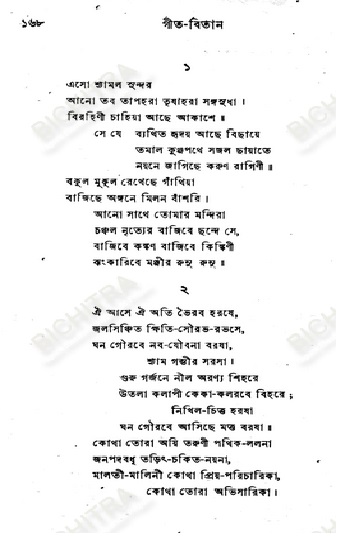 ১৬৮ গীত-বিতান
১
এসো শ্যামল সুন্দর
আনো তব তাপহরা তৃষাহরা সঙ্গসুধা ।
বিরহিণী চাহিয়া আছে আকাশে ॥
সে যে ব্যথিত হৃদয় আছে বিছায়ে
তমাল কুঞ্জপথে সজল ছায়াতে
নয়নে জাগিছে করুণ রাগিণী ॥
বকুল মুকুল রেখেছে গাঁথিয়া
বাজিছে অঙ্গনে মিলন বাঁশরি ।
আনো সাথে তোমার মন্দিরা
চঞ্চল নৃত্যের বাজিবে ছন্দে সে,
বাজিবে কঙ্কণ বাজিবে কিঙ্কিণী
ঝংকারিবে মঞ্জীর রুণু রুণু ॥
২
ঐ আসে ঐ অতি ভৈরব হরষে,
জলসিঞ্চিত ক্ষিতি-সৌরভ-রভসে,
ঘন গৌরবে নব-যৌবনা বরষা,
শ্যাম গম্ভীর সরসা ।
গুরু গর্জনে নীল অরণ্য শিহরে
উতলা কলাপী কেকা-কলরবে বিহরে ;
নিখিল-চিত্ত হরষা
ঘন গৌরবে আসিছে মত্ত বরষা ॥
কোথা তোরা অয়ি তরুণী পথিক-ললনা
জনপদবধূ তড়িৎ-চকিত-নয়না,
মালতী-মালিনী কোথা প্রিয়-পরিচারিকা,
কোথা তোরা অভিসারিকা ।
BICHITRA
BICHITRA
BICHITRA
BICHITRA